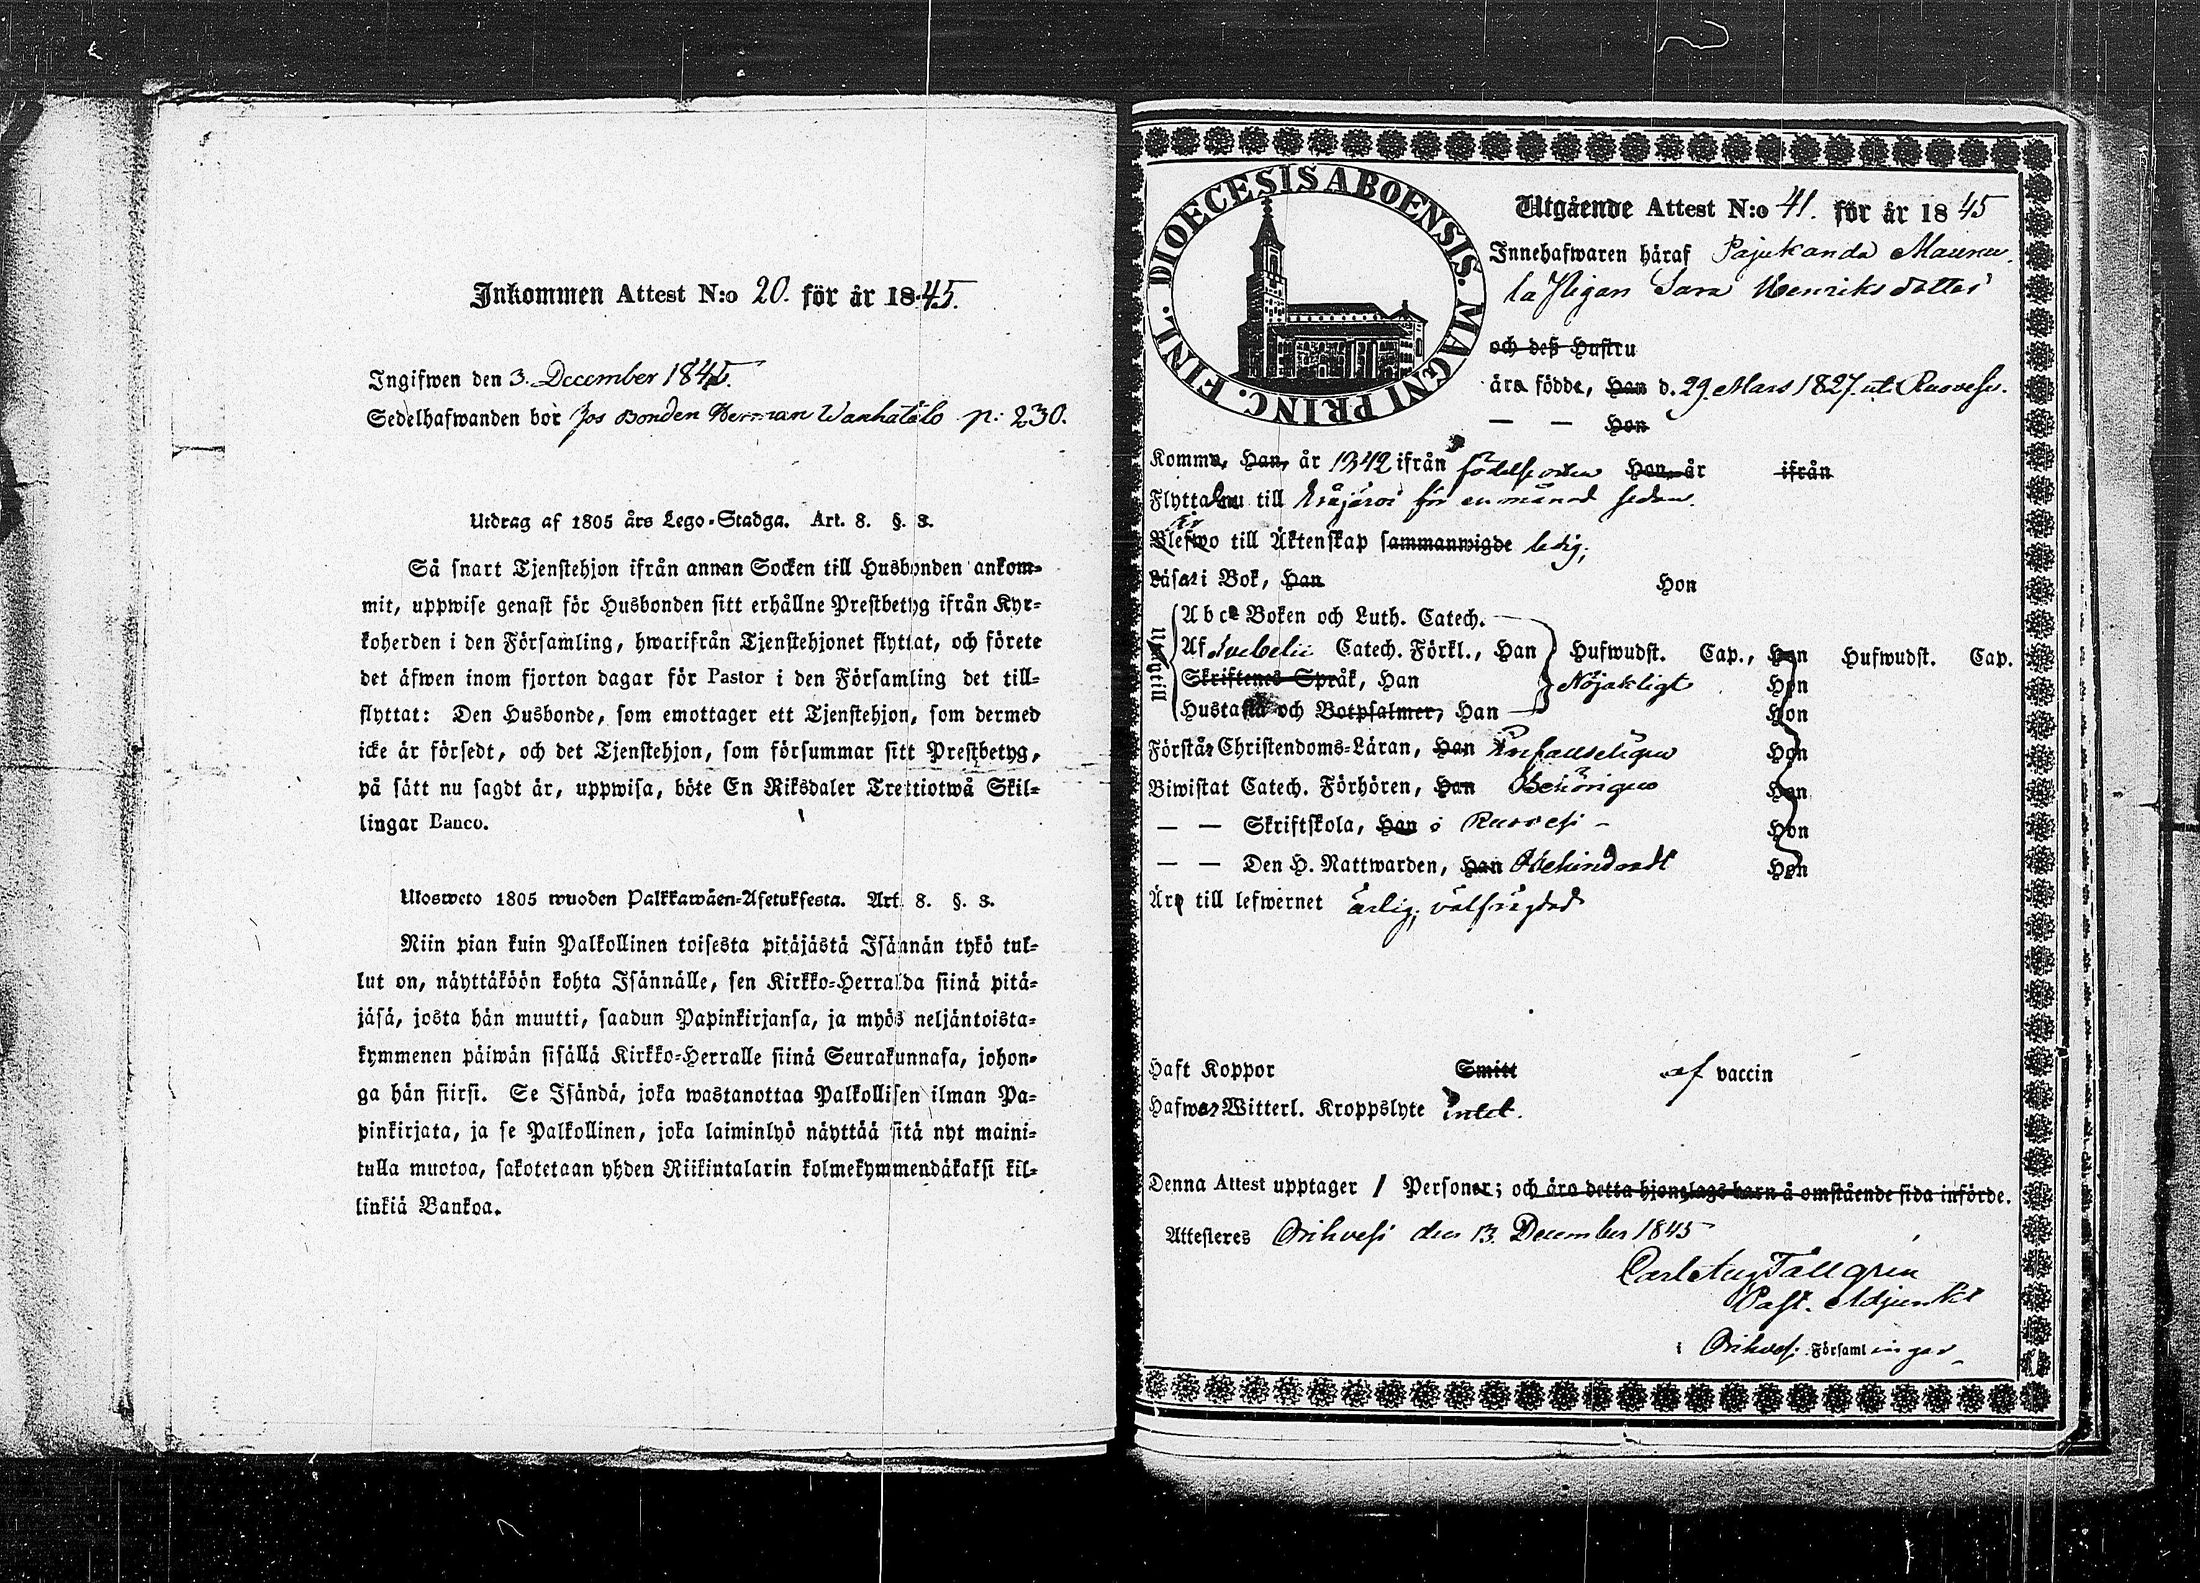 Inkommen Attest N:o 20. för år 1845.
Ingifwen den 3. December 1845.
Sedelhafwanden bor hos Bonden Herman Wanhatalo p: 230.
Utdrag af 1805 års Lego-Stadga. Art. 8. §. 3.
Så snart Tjenstehjon ifrån annan Socken till Husbonden ankom-
mit, uppwise genast för Husbonden sitt erhållne Prestbetyg ifrån Kyr-
koherden i den Församling, hwarifrån Tjenstehjonet flyttat, och förete
det äfwen inom fjorton dagar för Pastor i den Församling det till-
flyttat: Den Husbonde, som emottager ett Tjenstehjon, som dermed
icke är försedt, och det Tjenstehjon, som försummar sitt Prestbetyg,
på sätt nu sagdt är, uppwisa, böte En Riksdaler Trettiotwå Skil-
lingar Banco.
Ulosweto 1805 wuoden Palkkawäen-Asetuksesta. Art. 8. §. 3.
Niin pian kuin Palkollinen toisesta pitäjästä Isännän tykö tul-
lut on, näyttäköön kohta Isännälle, sen Kirkko-Herralda siinä pitä-
jäsä, josta hän muutti, saadun Papinkirjansa, ja myös neljäntoista-
kymmenen päiwän sisällä Kirkko-Herralle siinä Seurakunnasa, johon-
ga hän siirsi. Se Isändä, joka wastanottaa Palkollisen ilman Pa-
pinkirjata, ja se Palkollinen, joka laiminlyö näyttää sitä nyt maini-
tulla muotoa, sakotetaan yhden Riikintalarin kolmekymmendäkaksi kil-
linkiä Bankoa.
DIOECESIS ABOENSIS. MAGNI PRINC. FINL.
Utgående Attest N:o 41. för år 1845
Innehafwaren häraf Pajukanda Maunu-
la Pigan Sara Henriksdotter
och deß Hustru
äro födde, Han d. 29 Mars 1827. uti Ruovesi.
— — Hon
Komme, Han, år 1842 ifrån födelseorten Hon, år ifrån
Flytta nu till för en månad sedan.
Blefwo är till Äktenskap sammanwigde ledig;
Läsa i Bok, Han Hon
Abc Boken och Luth. Catech.
Utantill Af Svebelii Catech. Förkl., Han Hufwudst. Cap., Hon Hufwudst. Cap.
Skriftenes Språk, Han Nöjaktigt Hon
Hustafla och Botpsalmer, Han Hon
Förstår Christendoms-Läran, Han Enfalldeligen Hon
Biwistat Catech. Förhören, Han Behörigen Hon
— — Skriftskola, Han i Ruovesi – Hon
— — Den H. Nattwarden, Han Obehindradt Hon
Äro till lefwernet ärlig, välfrägdad
Haft Koppor Smitt af vaccin
Hafwer Witterl. Kroppslyte intet.
Denna Attest upptager 1 Personer; och äro detta hjonelags barn å omstående sida införde.
Attesteres Orihvesi den 13. December 1845
Carl Aug Tallgren
Past. Adjunkt
i Orihvesi Församlingar